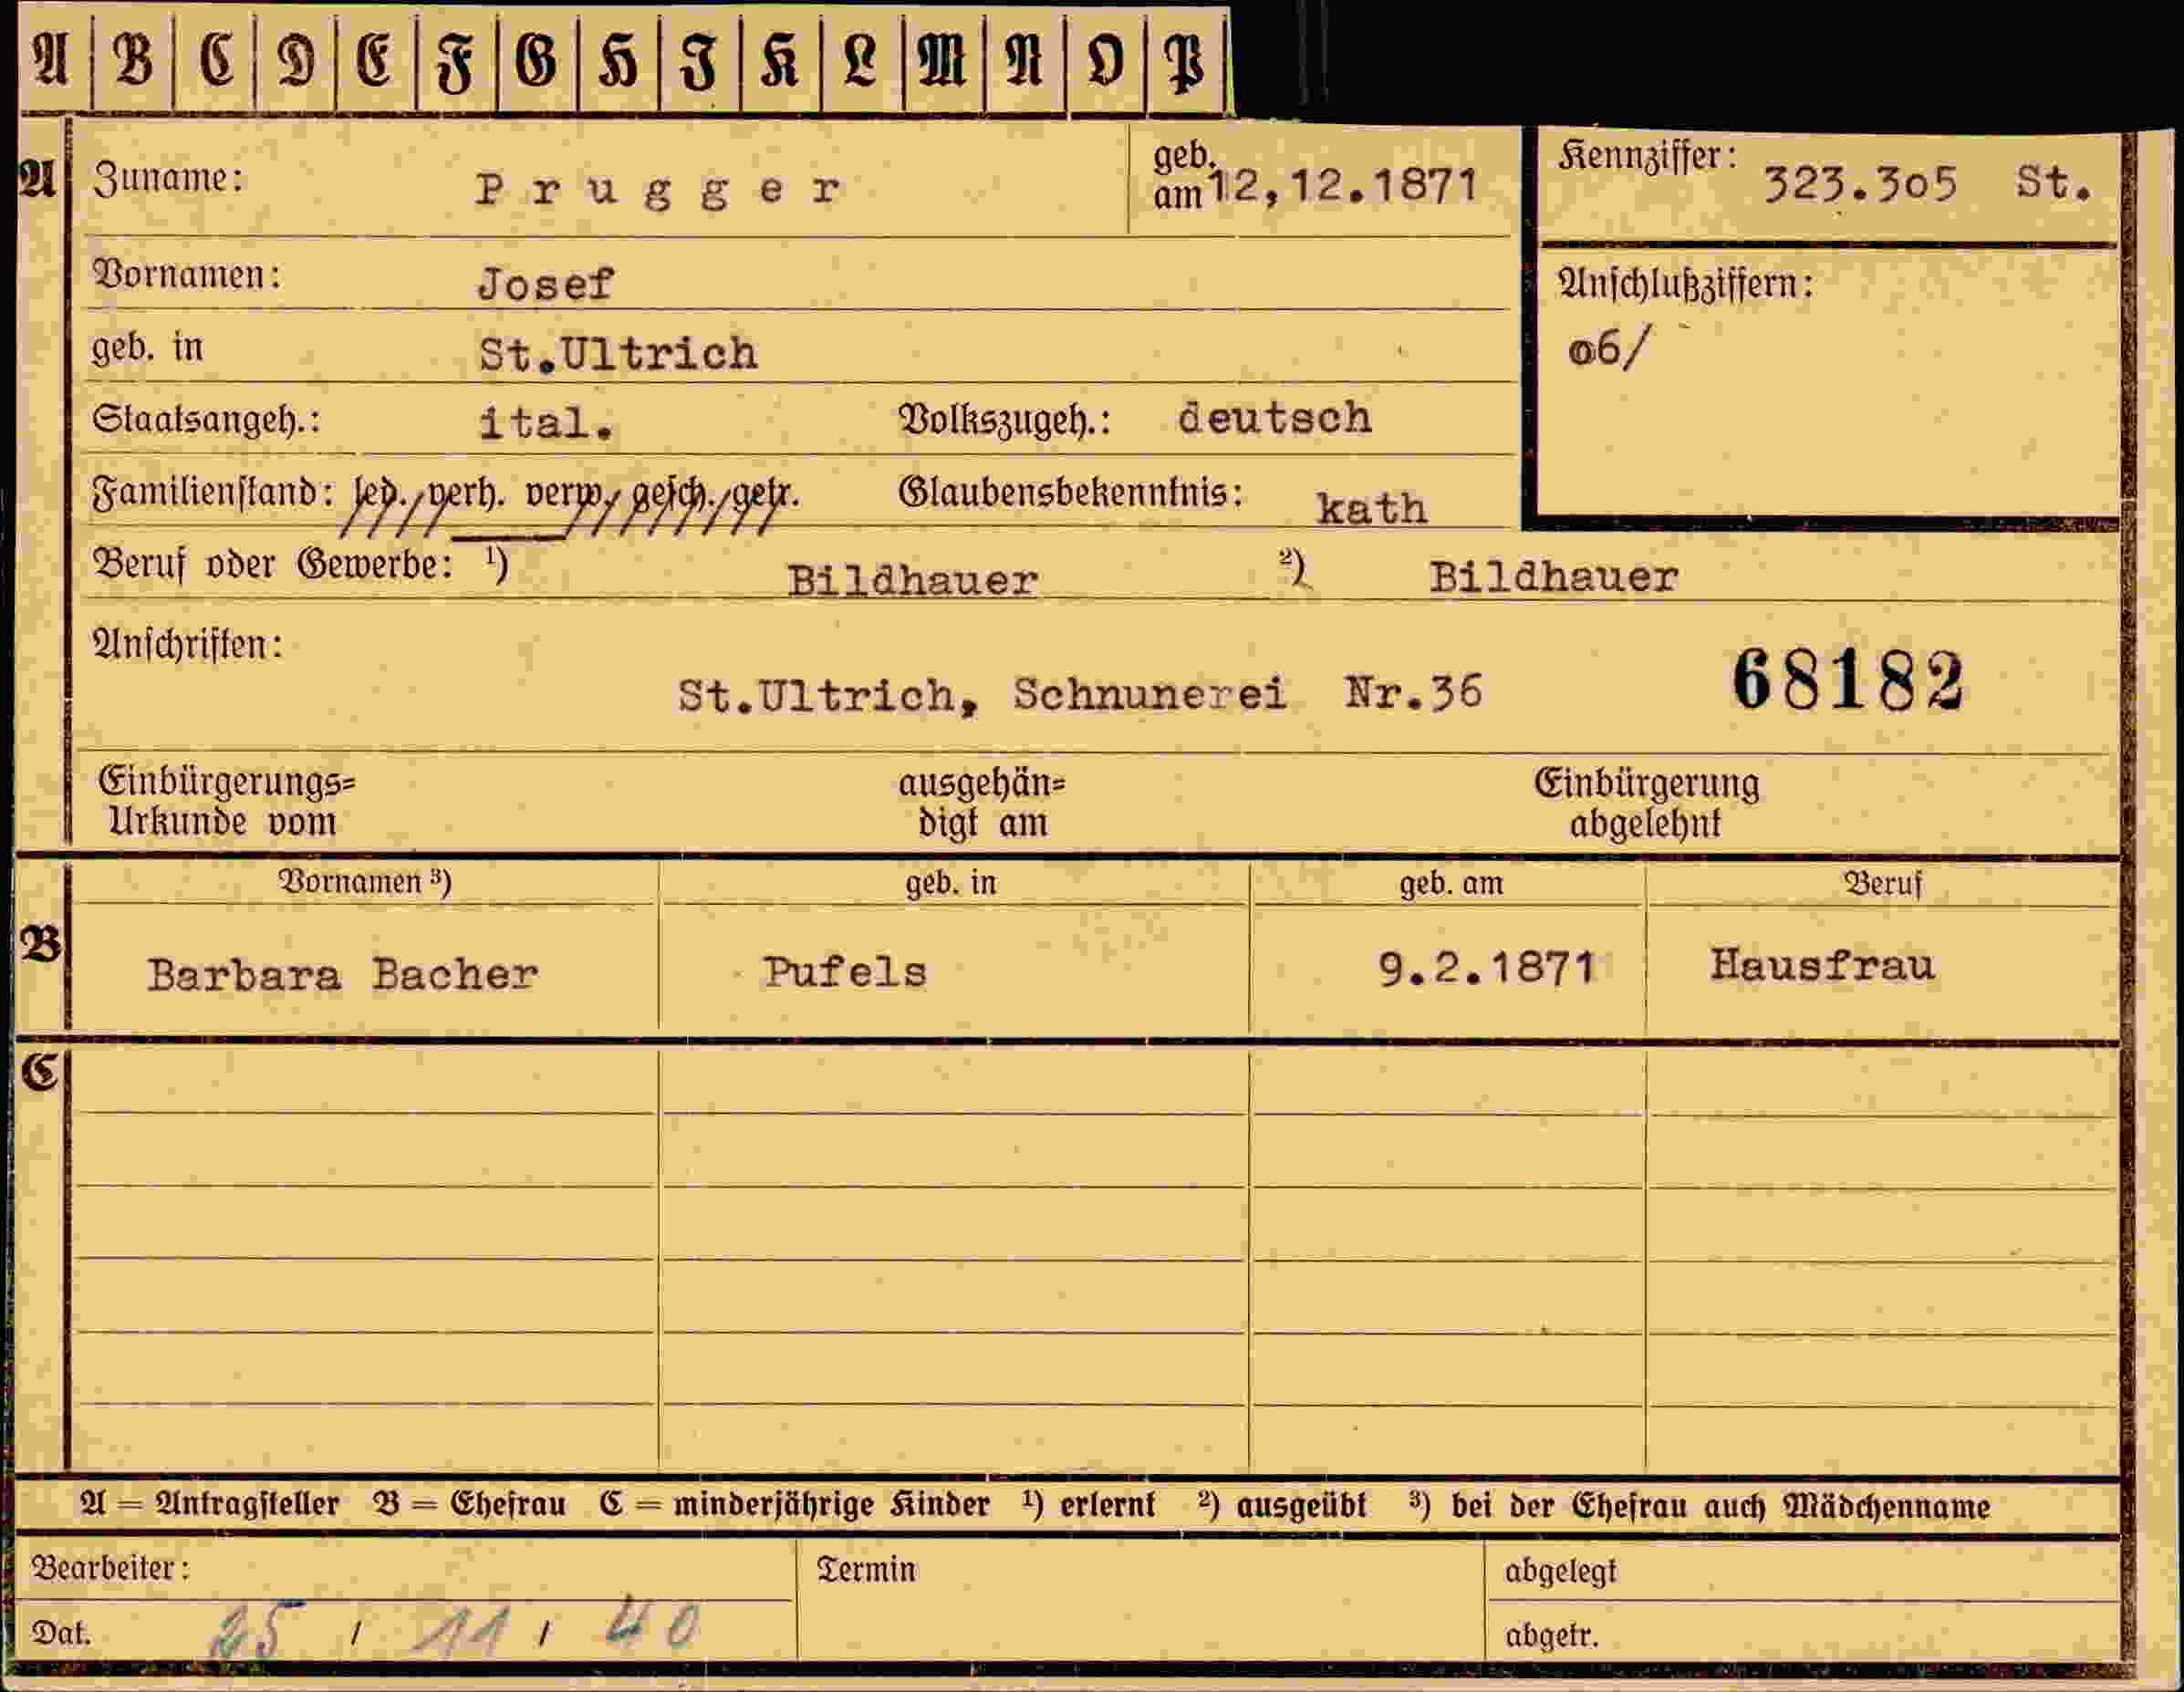 A B C D E F G H I K L M N O P
A Zuname: Prugger geb. am 12,12.1871 Kennziffer: 323.3o5 St.
Vornamen: Josef Anschlußziffern:
geb. in St.Ultrich o6/
Staatsangeh.: ital. Volkszugeh.: deutsch
Familienstand: led. verh. verw. gesch. getr. Glaubensbekenntnis: kath
Beruf oder Gewerbe: ¹) Bildhauer ²) Bildhauer
Anschriften:
St.Ultrich, Schnunerei Nr.36 68182
Einbürgerungs= ausgehän= Einbürgerung
Urkunde vom digt am abgelehnt
Vornamen ³) geb. in geb. am Beruf
B Barbara Bacher Pufels 9.2.1871 Hausfrau
C
A = Antragsteller B = Ehefrau C = minderjährige Kinder ¹) erlernt ²) ausgeübt ³) bei der Ehefrau auch Mädchenname
Bearbeiter: Termin abgelegt
Dat. 25 / 11 / 40 abgetr.